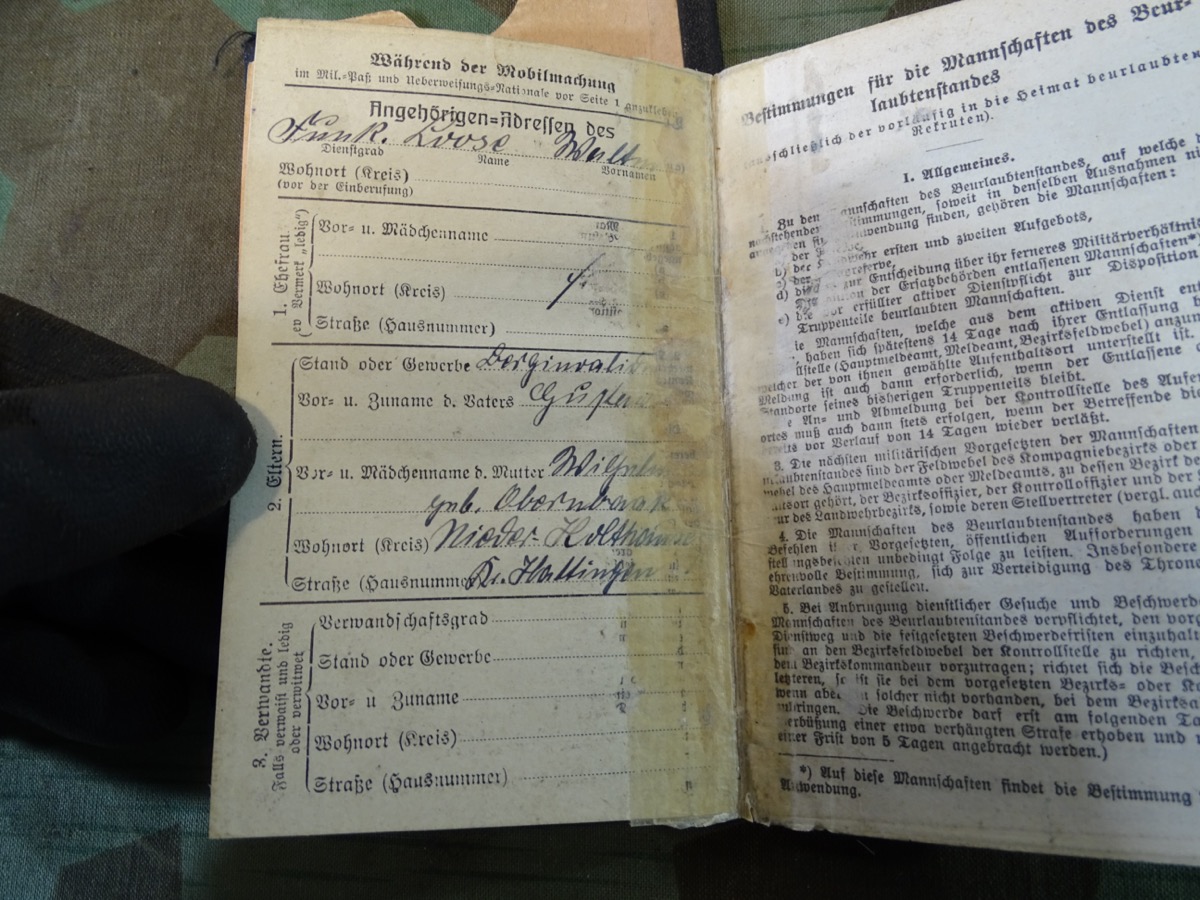 Während der Mobilmachung
im Mil.-Paß und Ueberweisungs-Nationale vor Seite 1 anzukleben
Angehörigen-Adressen des
Funk. Loose Walt
Dienstgrad Name Vornamen
Wohnort (Kreis)
(vor der Einberufung)
1. Ehefrau.
(ev Vermerk „ledig“)
Vor- u. Mädchenname
Wohnort (Kreis)
Straße (Hausnummer)
2. Eltern.
Stand oder Gewerbe Berginvalid
Vor- u. Zuname d. Vaters Gust
Vor- u. Mädchenname d. Mutter Wilhelm
geb. Obernbrak
Wohnort (Kreis) Nieder-Holthause
Straße (Hausnummer Kr. Hattingen
3. Verwandte.
Falls verwaist und ledig
oder verwitwet
Verwandschaftsgrad
Stand oder Gewerbe
Vor- u Zuname
Wohnort (Kreis)
Straße (Hausnummer)
Bestimmungen für die Mannschaften des Beur-
laubtenstandes
schließlich der vorläufig in die Heimat beurlaubten
Rekruten).
I. Allgemeines.
1. Zu den annschaften des Beurlaubtenstandes, auf welche
nachstehenden stimmungen, soweit in denselben Ausnahmen ni
wendung finden, gehören die Mannschaften:
der ersten und zweiten Aufgebots,
reserve,
d) zur Entscheidung über ihr ferneres Militärverhältni
der Ersatzbehörden entlassenen Mannschaften*
e) vor erfüllter aktiver Dienstpflicht zur Disposition
Truppenteile beurlaubten Mannschaften.
ie Mannschaften, welche aus dem aktiven Dienst ent
haben sich spätestens 14 Tage nach ihrer Entlassung
stelle (Hauptmeldeamt, Meldeamt, Bezirksfeldwebel) anzum
welcher der von ihnen gewählte Aufenthaltsort unterstellt ist.
Meldung ist auch dann erforderlich, wenn der Entlassene
Standorte seines bisherigen Truppenteils bleibt.
e An- und Abmeldung bei der Kontrollstelle des Aufen
ortes muß auch dann stets erfolgen, wenn der Betreffende die
bereits vor Verlauf von 14 Tagen wieder verläßt.
3. Die nächsten militärischen Vorgesetzten der Mannschaften
urlaubtenstandes sind der Feldwebel des Kompagniebezirks oder
webel des Hauptmeldeamts oder Meldeamts, zu dessen Bezirk de
altsort gehört, der Bezirksoffizier, der Kontrolloffizier und der
ur des Landwehrbezirks, sowie deren Stellvertreter (vergl. auc
4. Die Mannschaften des Beurlaubtenstandes haben
Befehlen ihrer Vorgesetzten, öffentlichen Aufforderungen
stellungsbefehlen unbedingt Folge zu leisten. Insbesondere
ehrenvolle Bestimmung, sich zur Verteidigung des Throne
Vaterlandes zu gestellen.
5. Bei Anbringung dienstlicher Gesuche und Beschwerd
Mannschaften des Beurlaubtenstandes verpflichtet, den vorg
Dienstweg und die festgesetzten Beschwerdefristen einzuhalt
sind an den Bezirksfeldwebel der Kontrollstelle zu richten,
dem Bezirkskommandeur vorzutragen; richtet sich die Besch
letzteren, so ist sie bei dem vorgesetzten Bezirks- oder Ko
wenn aber solcher nicht vorhanden, bei dem Bezirksa
anbringen. Die Beschwerde darf erst am folgenden Ta
erbüßung einer etwa verhängten Strafe erhoben und
einer Frist von 5 Tagen angebracht werden.)
*) Auf diese Mannschaften findet die Bestimmung
Anwendung.